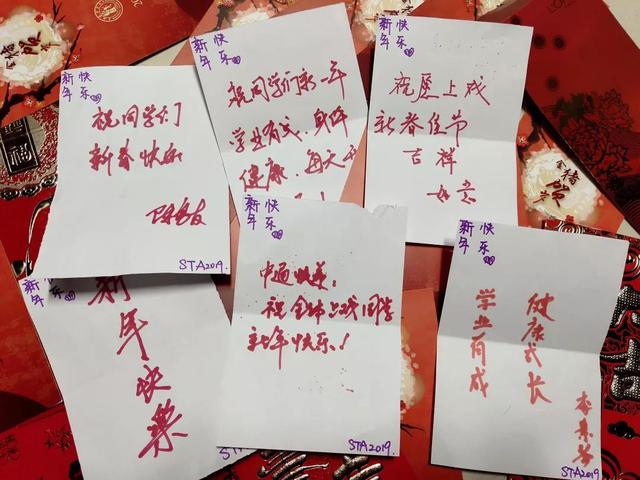 新年
快乐
祝同学们
新春快乐
STA2019.
新年
快乐
祝同学们新一年
学业有成，身体
健康，每天
新年
快乐
祝愿上戏
新春佳节
吉祥
如意
新年
快乐
新年快樂
STA2019.
新年
快乐
中通快递：
祝全体上戏同学
新年快乐！
STA2019.
新年
快乐
健康成长
学业有成
STA2019.
金猪